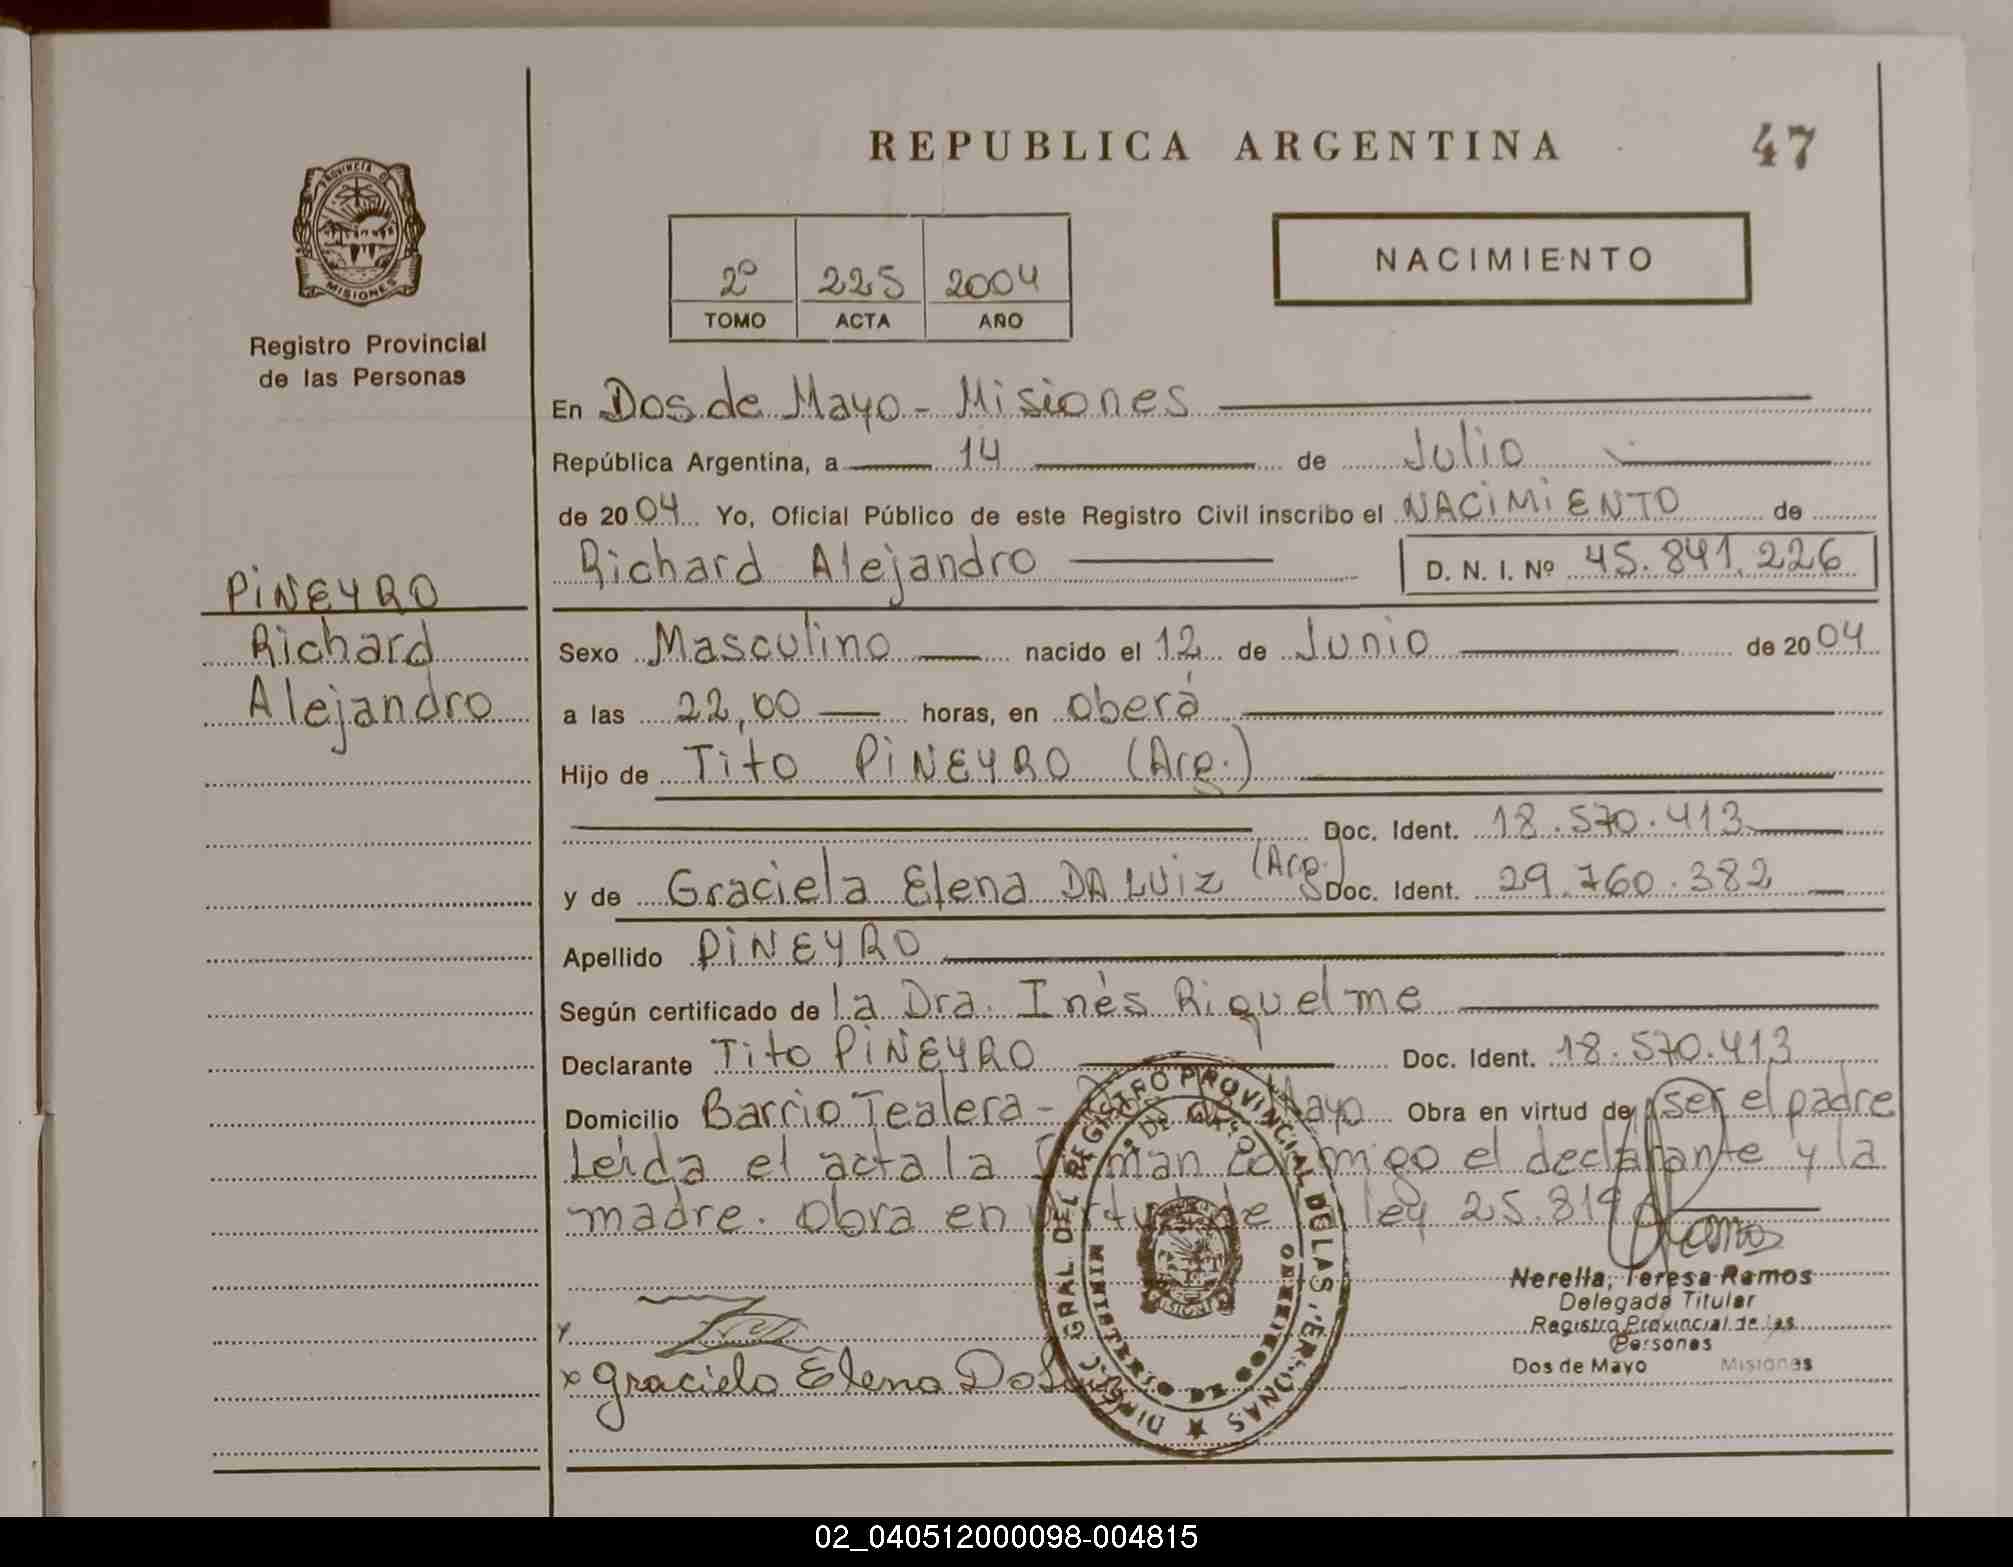 REPUBLICA ARGENTINA
47
PROVINCIA DE
MISIONES
Registro Provincial
de las Personas
2º 225 2004
TOMO ACTA AÑO
NACIMIENTO
En Dos de Mayo - Misiones
República Argentina, a 14 de Julio
de 2004 Yo, Oficial Público de este Registro Civil inscribo el NACIMIENTO de
Richard Alejandro D. N. I. Nº 45.841.226
PIÑEYRO
Richard
Alejandro
Sexo Masculino nacido el 12 de Junio de 2004
a las 22,00 horas, en Oberá
Hijo de Tito PIÑEYRO (Arg.)
Doc. Ident. 18.570.413
y de Graciela Elena DA LUIZ (Arg.) Doc. Ident. 29.760.382
Apellido PIÑEYRO
Según certificado de la Dra. Inés Riquelme
Declarante Tito PIÑEYRO Doc. Ident. 18.570.413
Domicilio Barrio Tealera - Mayo Obra en virtud de ser el padre
Leida el acta la firman conmigo el declarante y la
madre. Obra en virtud de ley 25.819
Nerella, Teresa Ramos
Delegada Titular
Registro Provincial de las
Personas
Dos de Mayo Misiones
x Graciela Elena Da Luiz
DIREC. GRAL. DEL REGISTRO PROVINCIAL DE LAS PERSONAS
MINISTERIO DE GOBIERNO
02_040512000098-004815